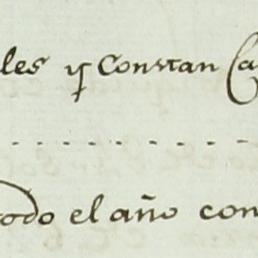 les y Constan Ca
todo el año con